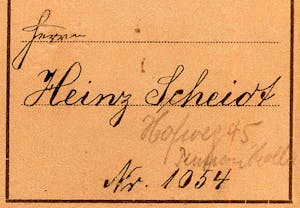 Herrn
Heinz Scheidt
Hofweg 45
Nr. 1054